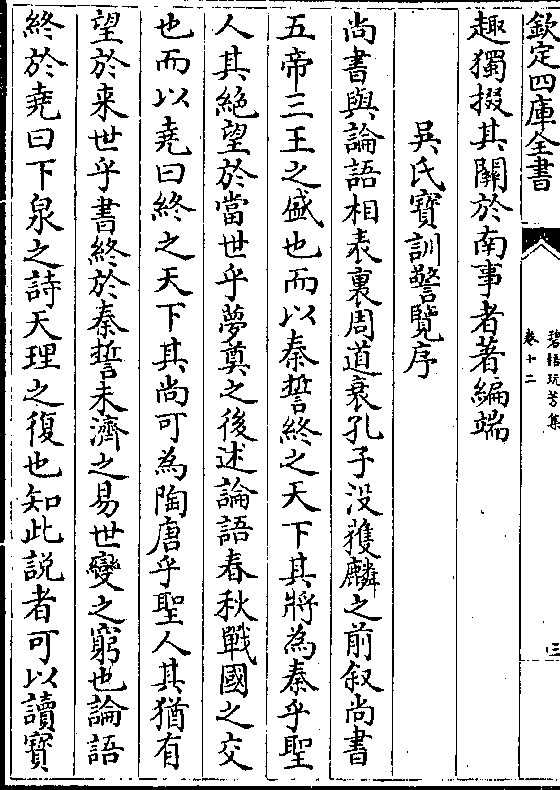 欽定四庫全書
碧梧玩芳集
卷十二
三
趣獨掇其關於南事者著編端
吳氏寶訓警覽序
尚書與論語相表裏周道衰孔子没獲麟之前叙尚書
五帝三王之盛也而以秦誓終之天下其將為秦乎聖
人其絶望於當世乎夢奠之後述論語春秋戰國之交
也而以堯曰終之天下其尚可為陶唐乎聖人其猶有
望於来世乎書終於秦誓未濟之易世變之窮也論語
終於堯曰下泉之詩天理之復也知此説者可以讀寶